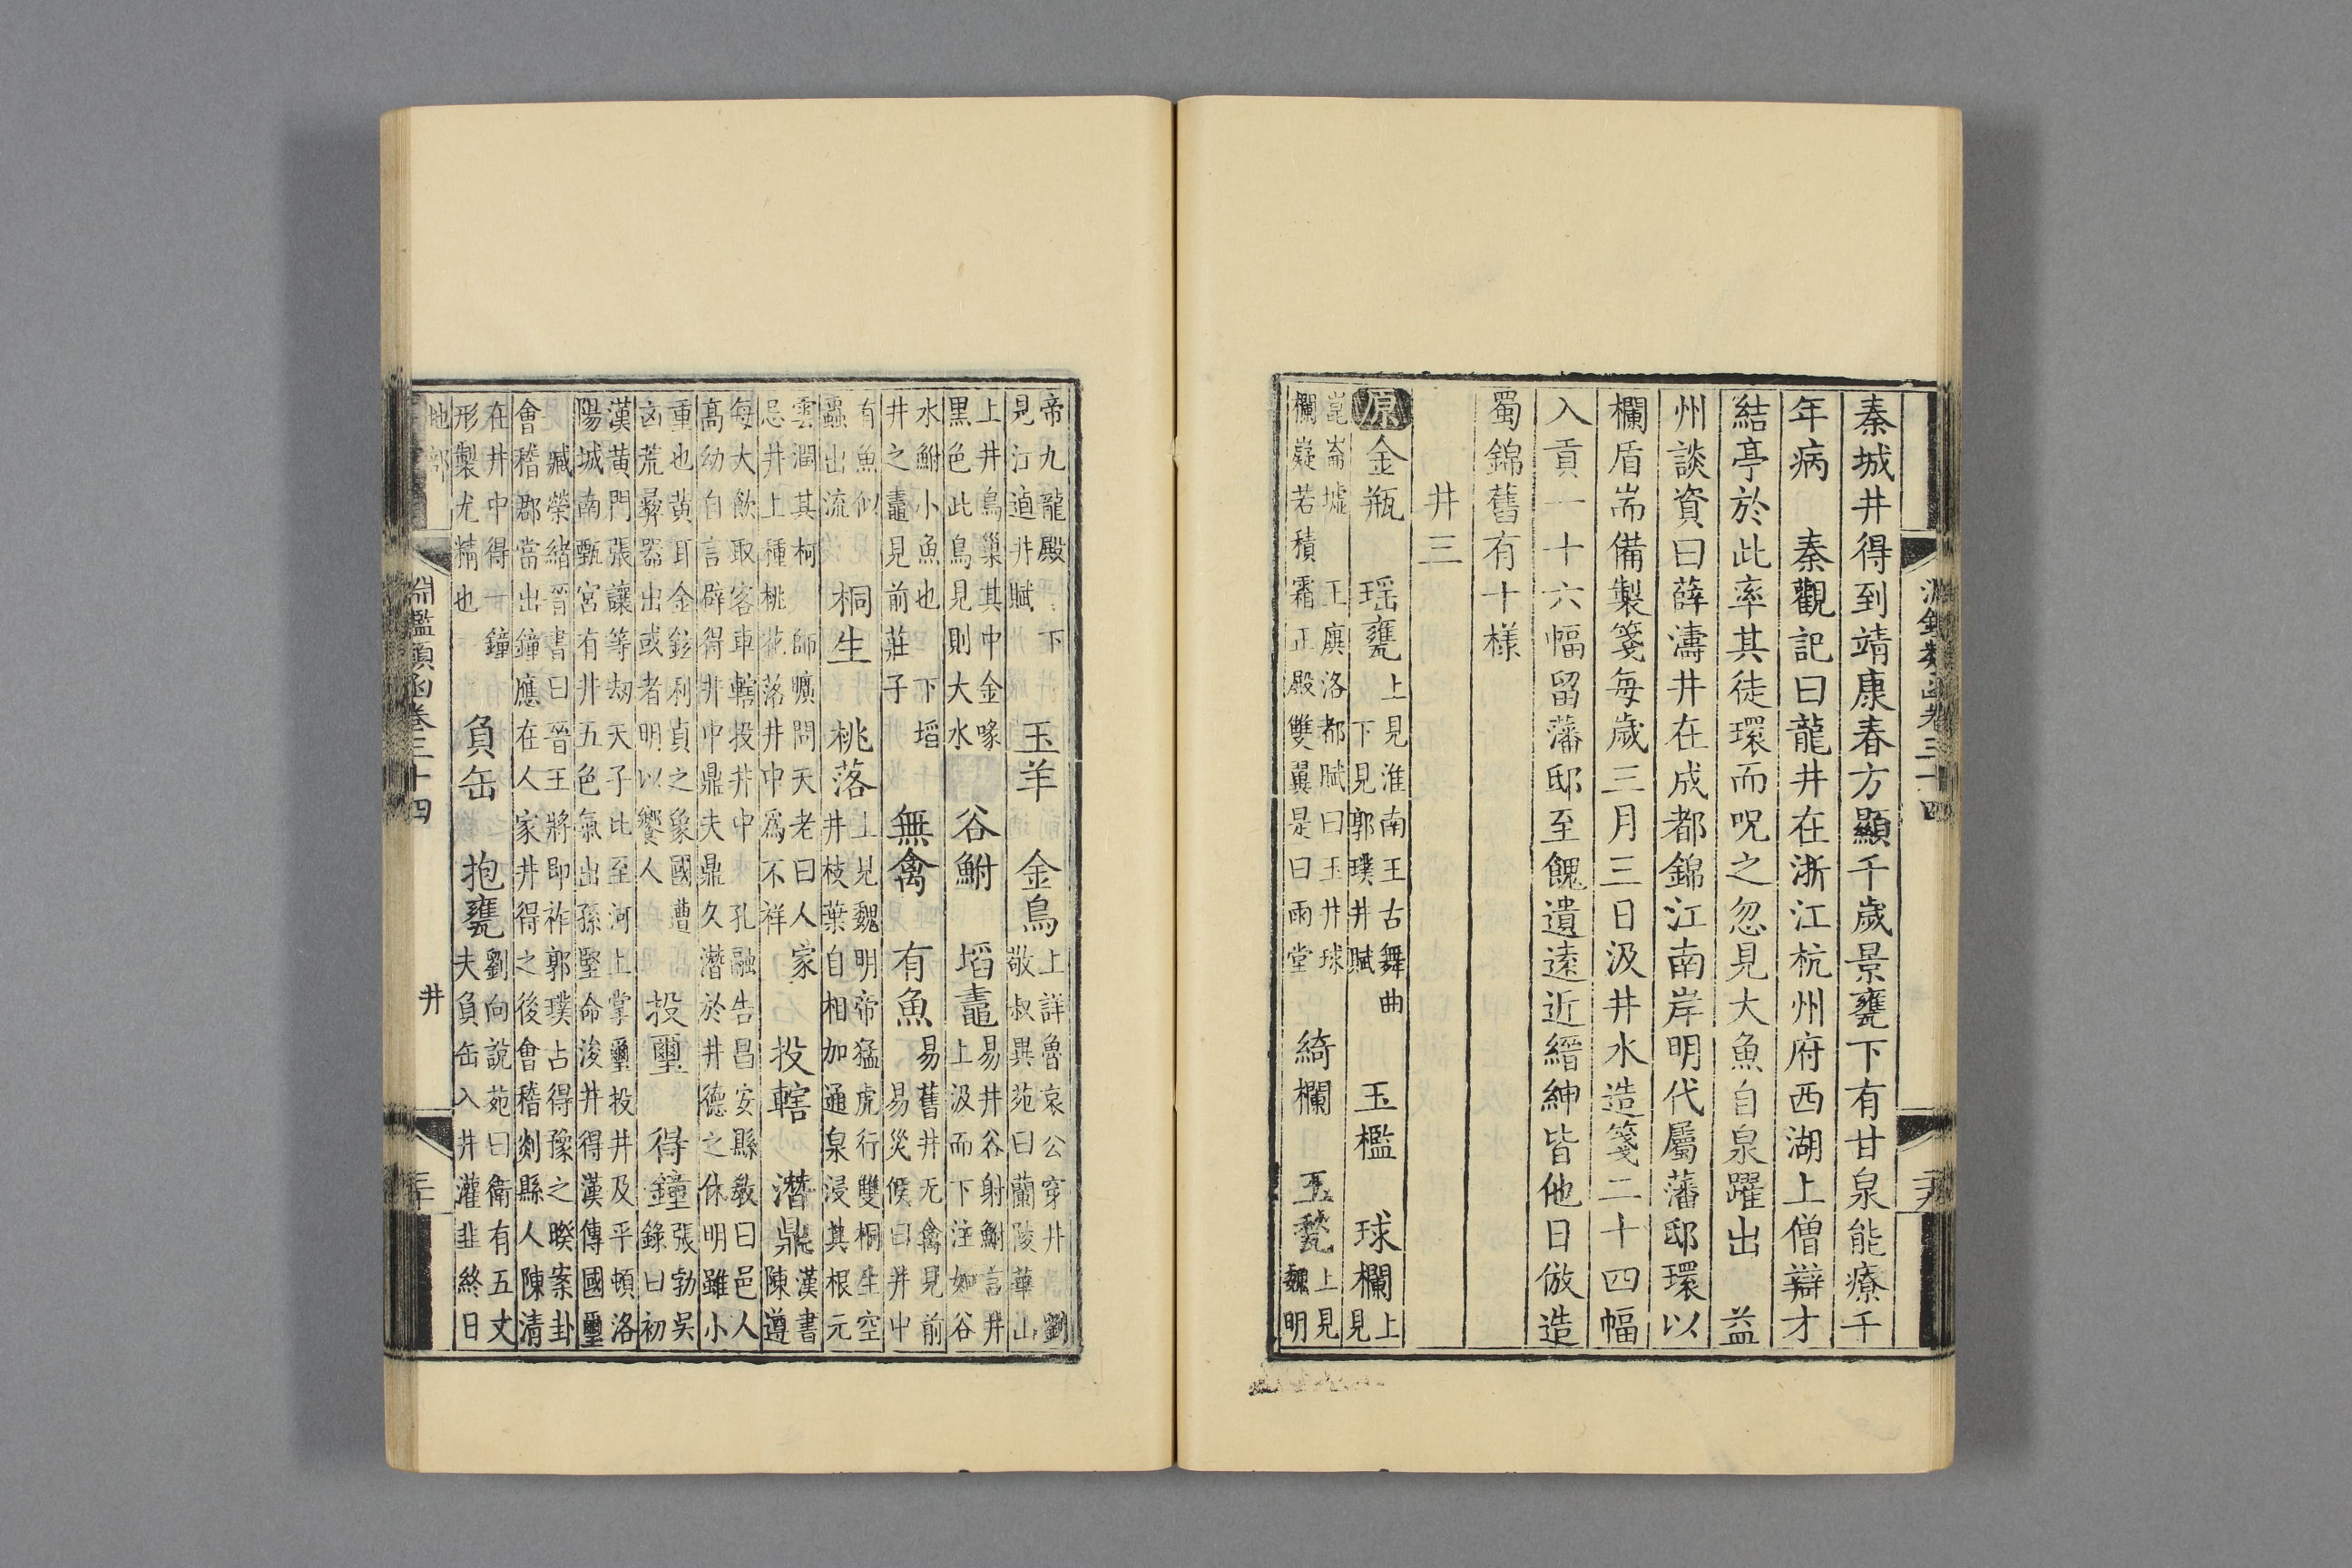 秦城井得到靖康春方顯千歲景甕下有甘泉能療千
年病　秦觀記曰龍井在浙江杭州府西湖上僧辯才
結亭於此率其徒環而呪之忽見大魚自泉躍出　益
州談資曰薛濤井在成都錦江南岸明代屬藩邸環以
欄盾耑備製箋每歲三月三日汲井水造箋二十四幅
入貢一十六幅留藩邸至餽遺遠近縉紳皆他日倣造
蜀錦舊有十樣
井三
原金瓶　瑶甕上見淮南王古舞曲下見郭璞井賦　玉檻　球欄上見
崑崙墟　王廙洛都賦曰玉井球欄嶷若積霜正殿雙翼是曰雨堂　綺欄　玉甃上見魏明
帝九龍殿　下見江逌井賦　玉羊　金鳥上詳魯哀公穿井　劉敬叔異苑曰蘭陵華山
上井鳥巢其中金喙黑色此鳥見則大水　谷鮒　埳鼃易井谷射鮒言井上汲而下注如谷
水鮒小魚也　下埳井之鼃見前莊子　無禽　有魚易舊井无禽見前　易災候曰井中
有魚似蟲出流　桐生　桃落上見魏明帝猛虎行雙桐生空井枝葉自相加通泉浸其根元
雲潤其柯　師曠問天老曰人家忌井上種桃花落井中為不祥　投轄　潛鼎漢書陳遵
每大飲取客車轄投井中　孔融告昌安縣教曰邑人高幼自言辟得井中鼎夫鼎久潛於井德之休明雖小
重也黄耳金鉉利貞之象國遭凶荒彝器出或者明以饗人　投璽　得鐘張勃吳録曰初
漢黄門張讓等劫天子北至河上掌璽投井及平頓洛陽城南甄宮有井五色氣出孫堅命浚井得漢傳國璽
臧榮緒晉書曰晉王將即祚郭璞占得豫之睽案卦會稽郡當出鐘應在人家井得之後會稽剡縣人陳清
在井中得一鐘形製尤精也　負缶　抱甕劉向說苑曰衛有五丈夫負缶入井灌韭終日
地部　淵鑑類函卷三十四　井